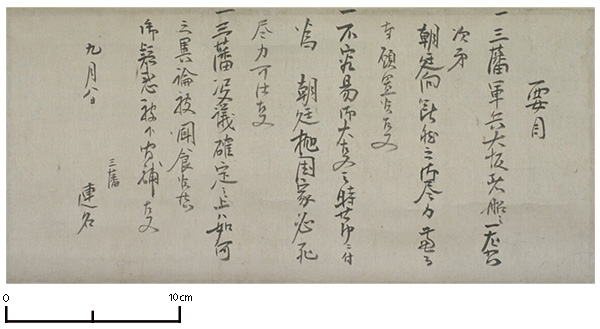 要目
一三藩軍兵大坂着船之一左右
次第
朝廷向断然之御尽力兼而
奉願置候事
一不容易御大事之時節ニ付
為 朝廷抛国家必死
尽力可仕事
一三藩決議確定之上ハ如何
之異論被聞食候共
御疑惑被下間舗事
九月八日
三藩
連名
0 10cm